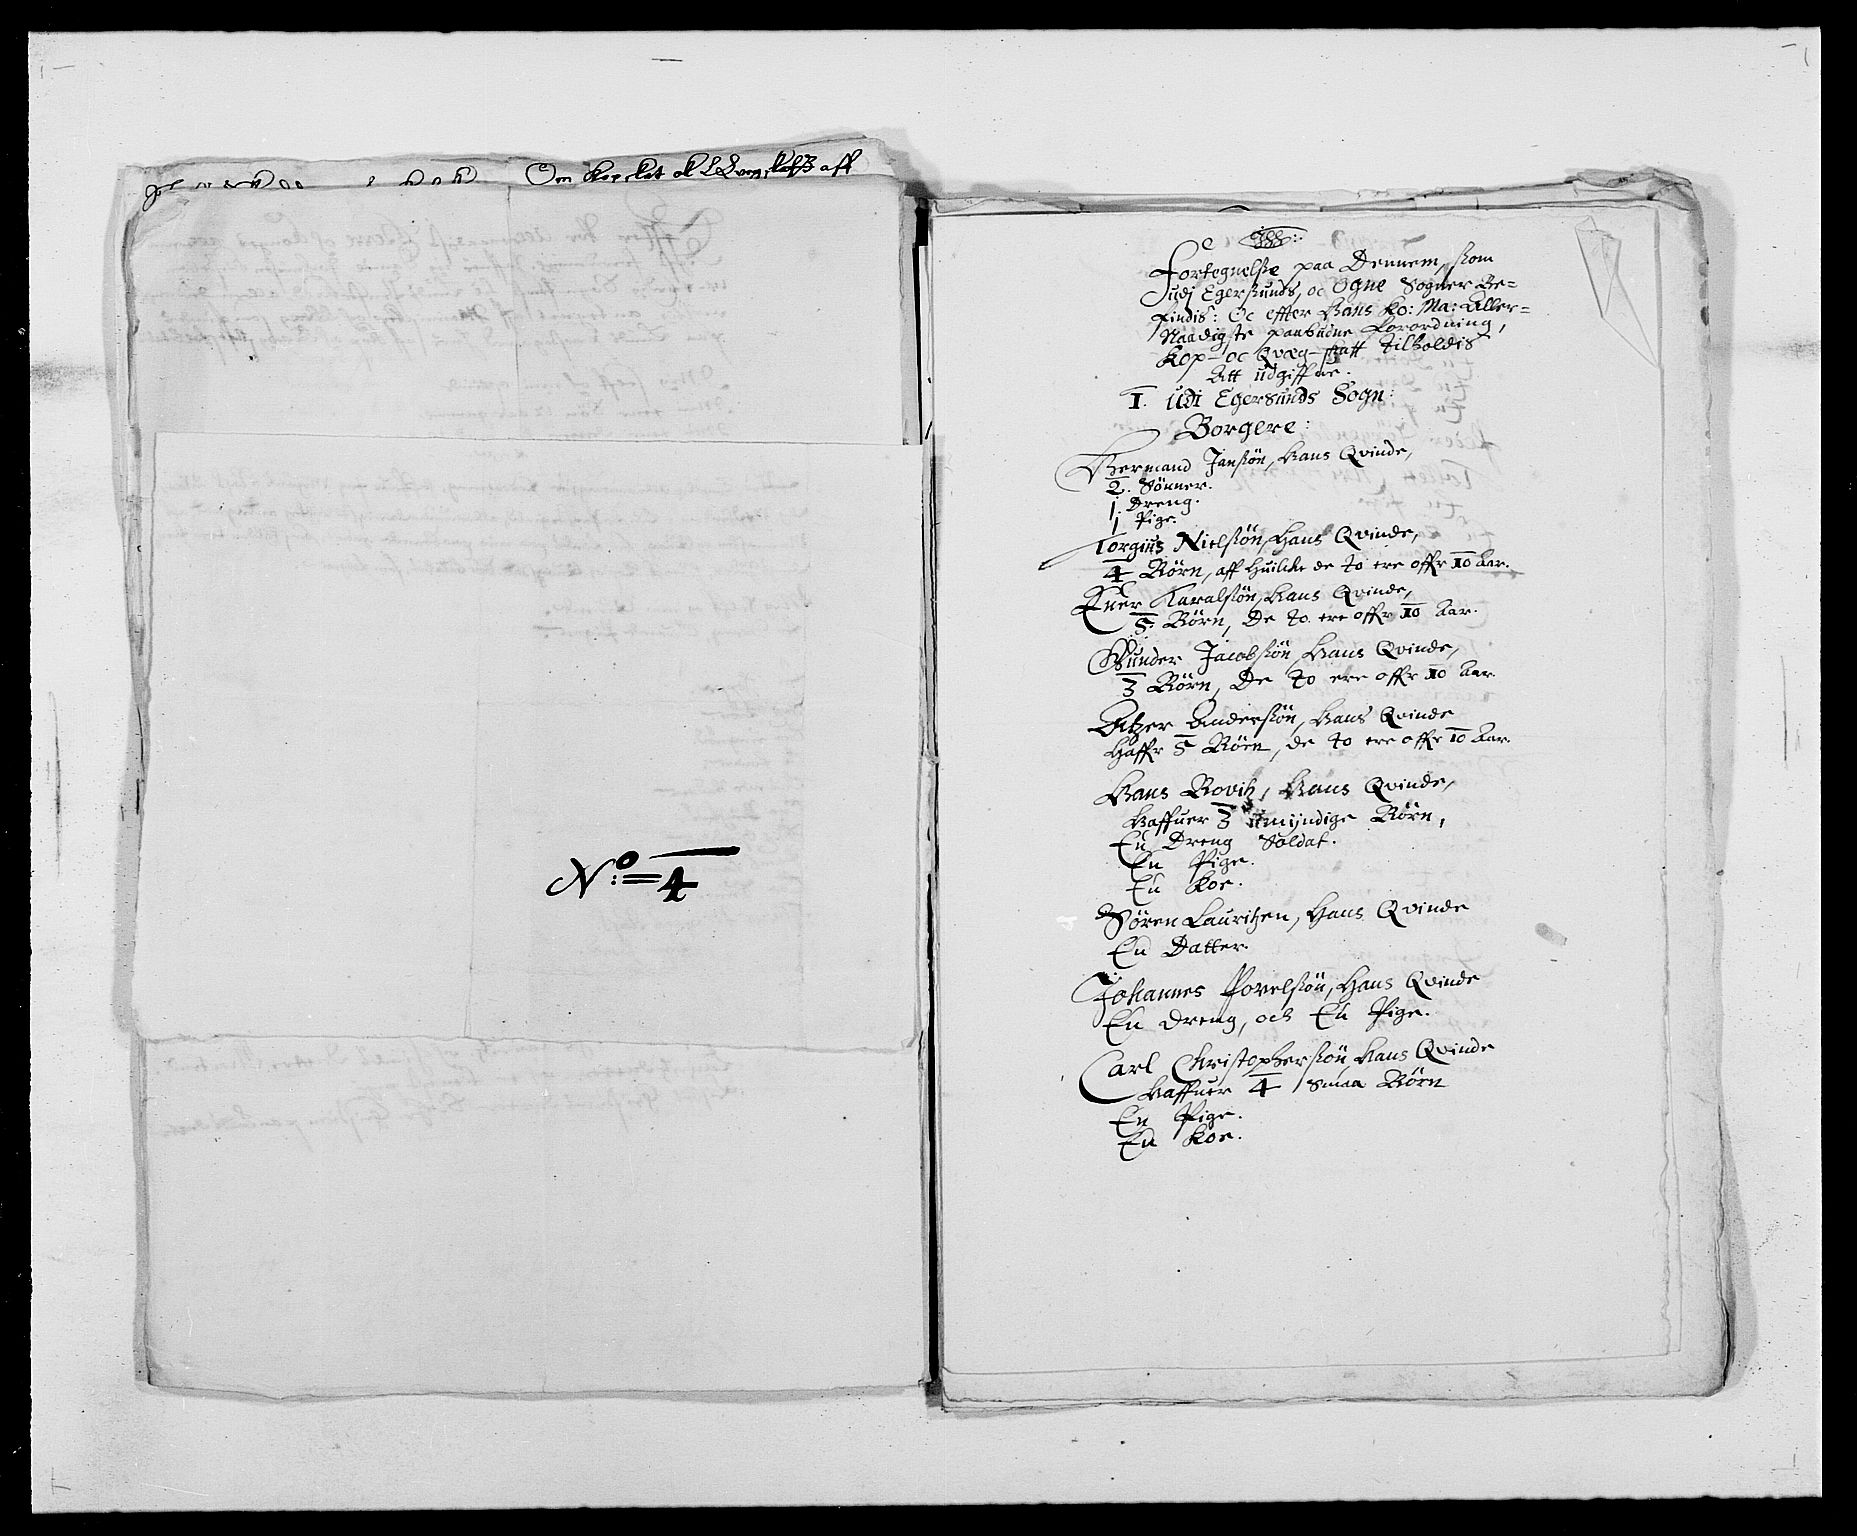 Om kopskat ok qvegskatt aff
N:o 4
Fortegnelse paa Dennem, som
udj Egersunds, oc Ogne Sogner Be=
findis: Oc effter Hans Ko: Ma: Aller=
Naadigste paabudne Forordning,
Kop- oc Qvæg-skatt tilholdis
Att udgiffue.
I. Udi Egersunds Sogn:
Borgere:
Hermand Jansøn, Hans Qvinde,
2. Sønner.
1. Dreng.
1 Pige.
Torgius Nielsøn, Hans Qvinde,
4 Børn, aff huilcke de to ere offr 10 Aar.
Iver Haralsøn, Hans Qvinde,
5. Børn, De to ere offr 10 Aar.
Gunder Jacobsøn, Hans Qvinde,
3 Børn, De to ere offr 10 Aar.
Atzer Andersøn, Hans Qvinde
Haffr 5 Børn, de to ere offr 10 Aar.
Hans Rovitz, Hans Qvinde,
Haffuer 3 umyndige Børn,
En Dreng Soldat.
En Pige.
En Koe.
Søren Lauritzen, Hans Qvinde
En Datter.
Johannes Povelsøn, Hans Qvinde
En dreng, och En Pige.
Carl Christophersøn, Hans Qvinde
Haffuer 4 smaa Børn
En Pige.
En Koe.